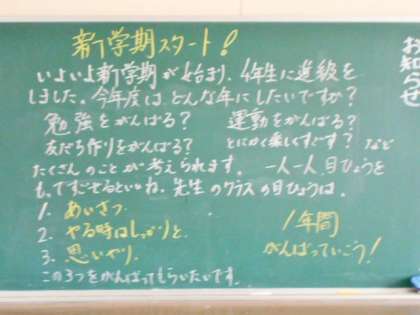 新学期スタート!
いよいよ新学期が始まり、4年生に進級を
しました。今年度は、どんな年にしたいですか?
勉強をがんばる? 運動をがんばる?
友だち作りをがんばる? とにかく楽しくすごす? など
たくさんのことが考えられます。一人一人目ひょうを
もってすごせるといいね。先生のクラスの目ひょうは、
1. あいさつ
2. やる時はしっかりと
3. 思いやり
この3つをがんばってもらいたいです。
1年間
がんばっていこう!
お知らせ